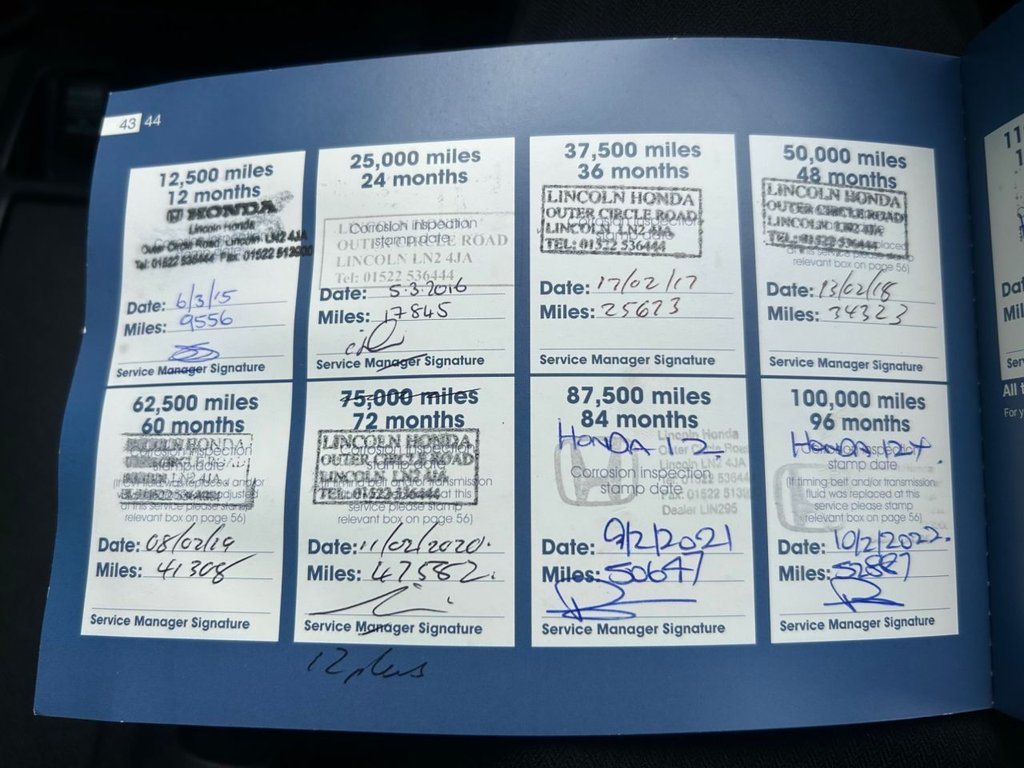 43 44
12,500 miles
12 months
HONDA
Lincoln Honda
Outer Circle Road Lincoln LN2 4JA
Tel: 01522 513900 Fax: 01522
Date: 6/3/15
Miles: 9556
Service Manager Signature
25,000 miles
24 months
Corrosion inspection
stamp date
OUTER CIRCLE ROAD
LINCOLN LN2 4JA
Tel: 01522 536444
Date: 5.3.2016
Miles: 17845
Service Manager Signature
37,500 miles
36 months
LINCOLN HONDA
OUTER CIRCLE ROAD
LINCOLN LN2 4JA
TEL: 01522 536444
Date: 17/02/17
Miles: 25623
Service Manager Signature
50,000 miles
48 months
LINCOLN HONDA
OUTER CIRCLE ROAD
LINCOLN LN2 4JA
TEL: 01522 536444
service please stamp
relevant box on page 56)
Date: 13/02/18
Miles: 34323
Service Manager Signature
62,500 miles
60 months
LINCOLN HONDA
Corrosion inspection
stamp date
service please stamp
relevant box on page 56)
Date: 08/02/19
Miles: 41308
Service Manager Signature
75,000 miles
72 months
LINCOLN HONDA
OUTER CIRCLE ROAD
LINCOLN LN2 4JA
TEL: 01522 536444
service please stamp
relevant box on page 56)
Date: 11/02/2020.
Miles: 47582.
Service Manager Signature
12 plus
87,500 miles
84 months
HONDA 12.
Lincoln Honda
Outer Circle Road
Lincoln LN2 4JA
Corrosion inspection
stamp date
Dealer LIN295
Date: 9/2/2021
Miles: 50647
Service Manager Signature
100,000 miles
96 months
HONDA 12+.
Corrosion inspection
stamp date
(If timing-belt and/or transmission
fluid was replaced at this
service please stamp
relevant box on page 56)
Date: 10/2/2022.
Miles: 52887
Service Manager Signature
All
For